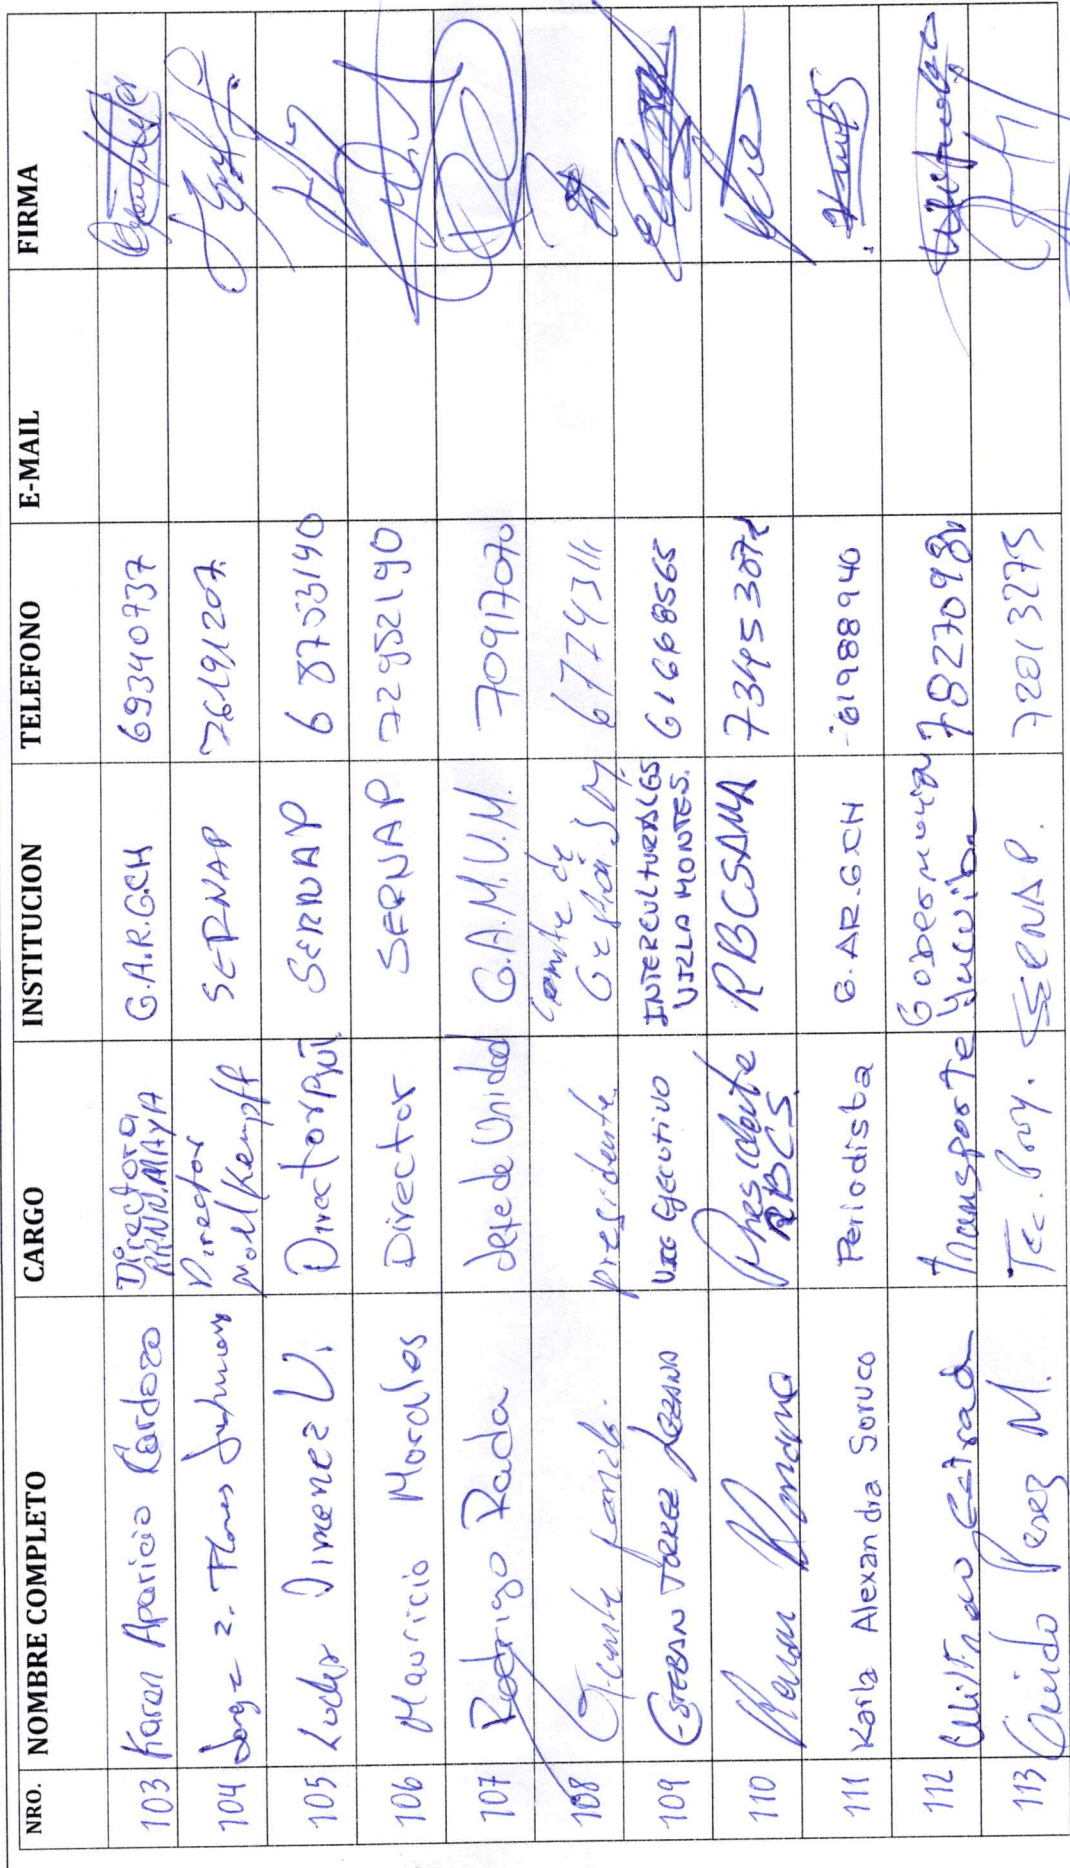 NRO. NOMBRE COMPLETO CARGO INSTITUCION TELEFONO E-MAIL FIRMA
103 Karen Aparicio Cardozo Directora RRNN.MAyA G.A.R.G.CH 69340737
104 Jorge Z. Flores Director SERNAP 76191207
105 Jimenez V. Director SERNAP 68753140
106 Mauricio Morales Director SERNAP 72952190
107 Rodrigo Rada Jefe de Unidad G.A.M.V.M. 70917070
108 presidente Comite de Gestion
109 ESTEBAN TORREZ LEZANA VICE EJECUTIVO INTERCULTURALES VILLA MONTES. 61668565
110 Presidente RBCS RBCSAMA
111 Karla Alexandra Soruco Periodista G.AR.G.CH 61988940
112 Transporte Yacuiba
113 Guido Perez M. Tec. Proy. SERNAP. 72013275